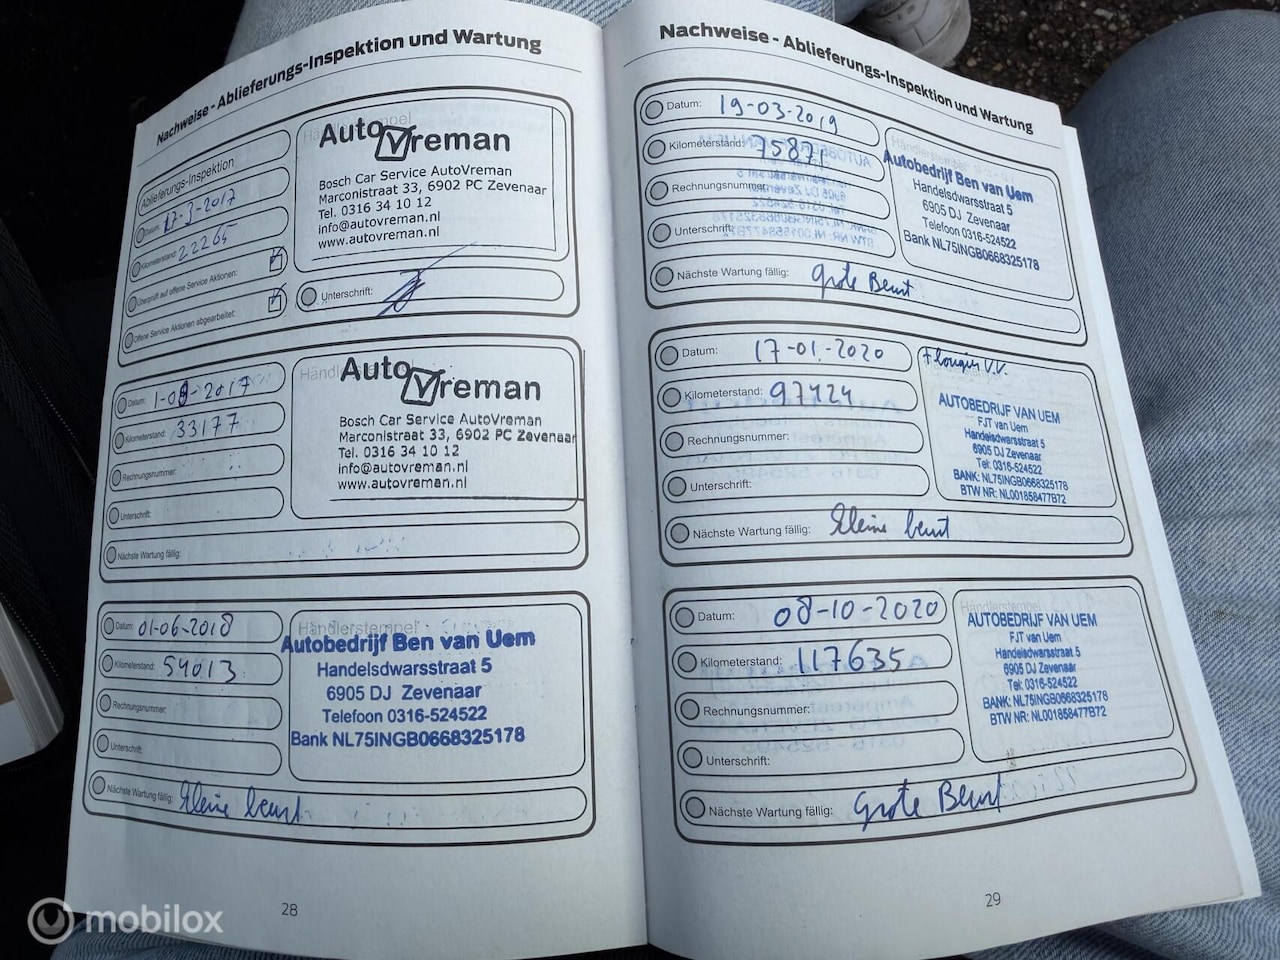 Nachweise - Ablieferungs-Inspektion und Wartung
Ablieferungs-Inspektion
Datum: 17-3-2017
Kilometerstand: 22265
Überprüft auf offene Service Aktionen:
Offene Service Aktionen abgearbeitet:
Händlerstempel
AutoVreman
Bosch Car Service AutoVreman
Marconistraat 33, 6902 PC Zevenaar
Tel. 0316 34 10 12
info@autovreman.nl
www.autovreman.nl
Unterschrift:
Datum: 1-09-2017
Kilometerstand: 33177
Rechnungsnummer:
Unterschrift:
Nächste Wartung fällig:
AutoVreman
Bosch Car Service AutoVreman
Marconistraat 33, 6902 PC Zevenaar
Tel. 0316 34 10 12
info@autovreman.nl
www.autovreman.nl
Datum: 01-06-2018
Kilometerstand: 54013
Rechnungsnummer:
Unterschrift:
Nächste Wartung fällig: Kleine beurt
Händlerstempel
Autobedrijf Ben van Uem
Handelsdwarsstraat 5
6905 DJ Zevenaar
Telefoon 0316-524522
Bank NL75INGB0668325178
28
Nachweise - Ablieferungs-Inspektion und Wartung
Datum: 19-03-2019
Kilometerstand: 75871
Rechnungsnummer:
Unterschrift:
Nächste Wartung fällig: Grote Beurt
Händlerstempel
Autobedrijf Ben van Uem
Handelsdwarsstraat 5
6905 DJ Zevenaar
Telefoon 0316-524522
Bank NL75INGB0668325178
Datum: 17-01-2020
Kilometerstand: 97424
Rechnungsnummer:
Unterschrift:
Nächste Wartung fällig: Kleine beurt
AUTOBEDRIJF VAN UEM
FJT van Uem
Handelsdwarsstraat 5
6905 DJ Zevenaar
Tel: 0316-524522
BANK: NL75INGB0668325178
BTW NR: NL001858477B72
Datum: 08-10-2020
Kilometerstand: 117635
Rechnungsnummer:
Unterschrift:
Nächste Wartung fällig: Grote Beurt
Händlerstempel
AUTOBEDRIJF VAN UEM
FJT van Uem
Handelsdwarsstraat 5
6905 DJ Zevenaar
Tel: 0316-524522
BANK: NL75INGB0668325178
BTW NR: NL001858477B72
29
mobilox